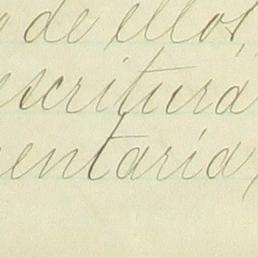 de ellos,
escritura
entaria,